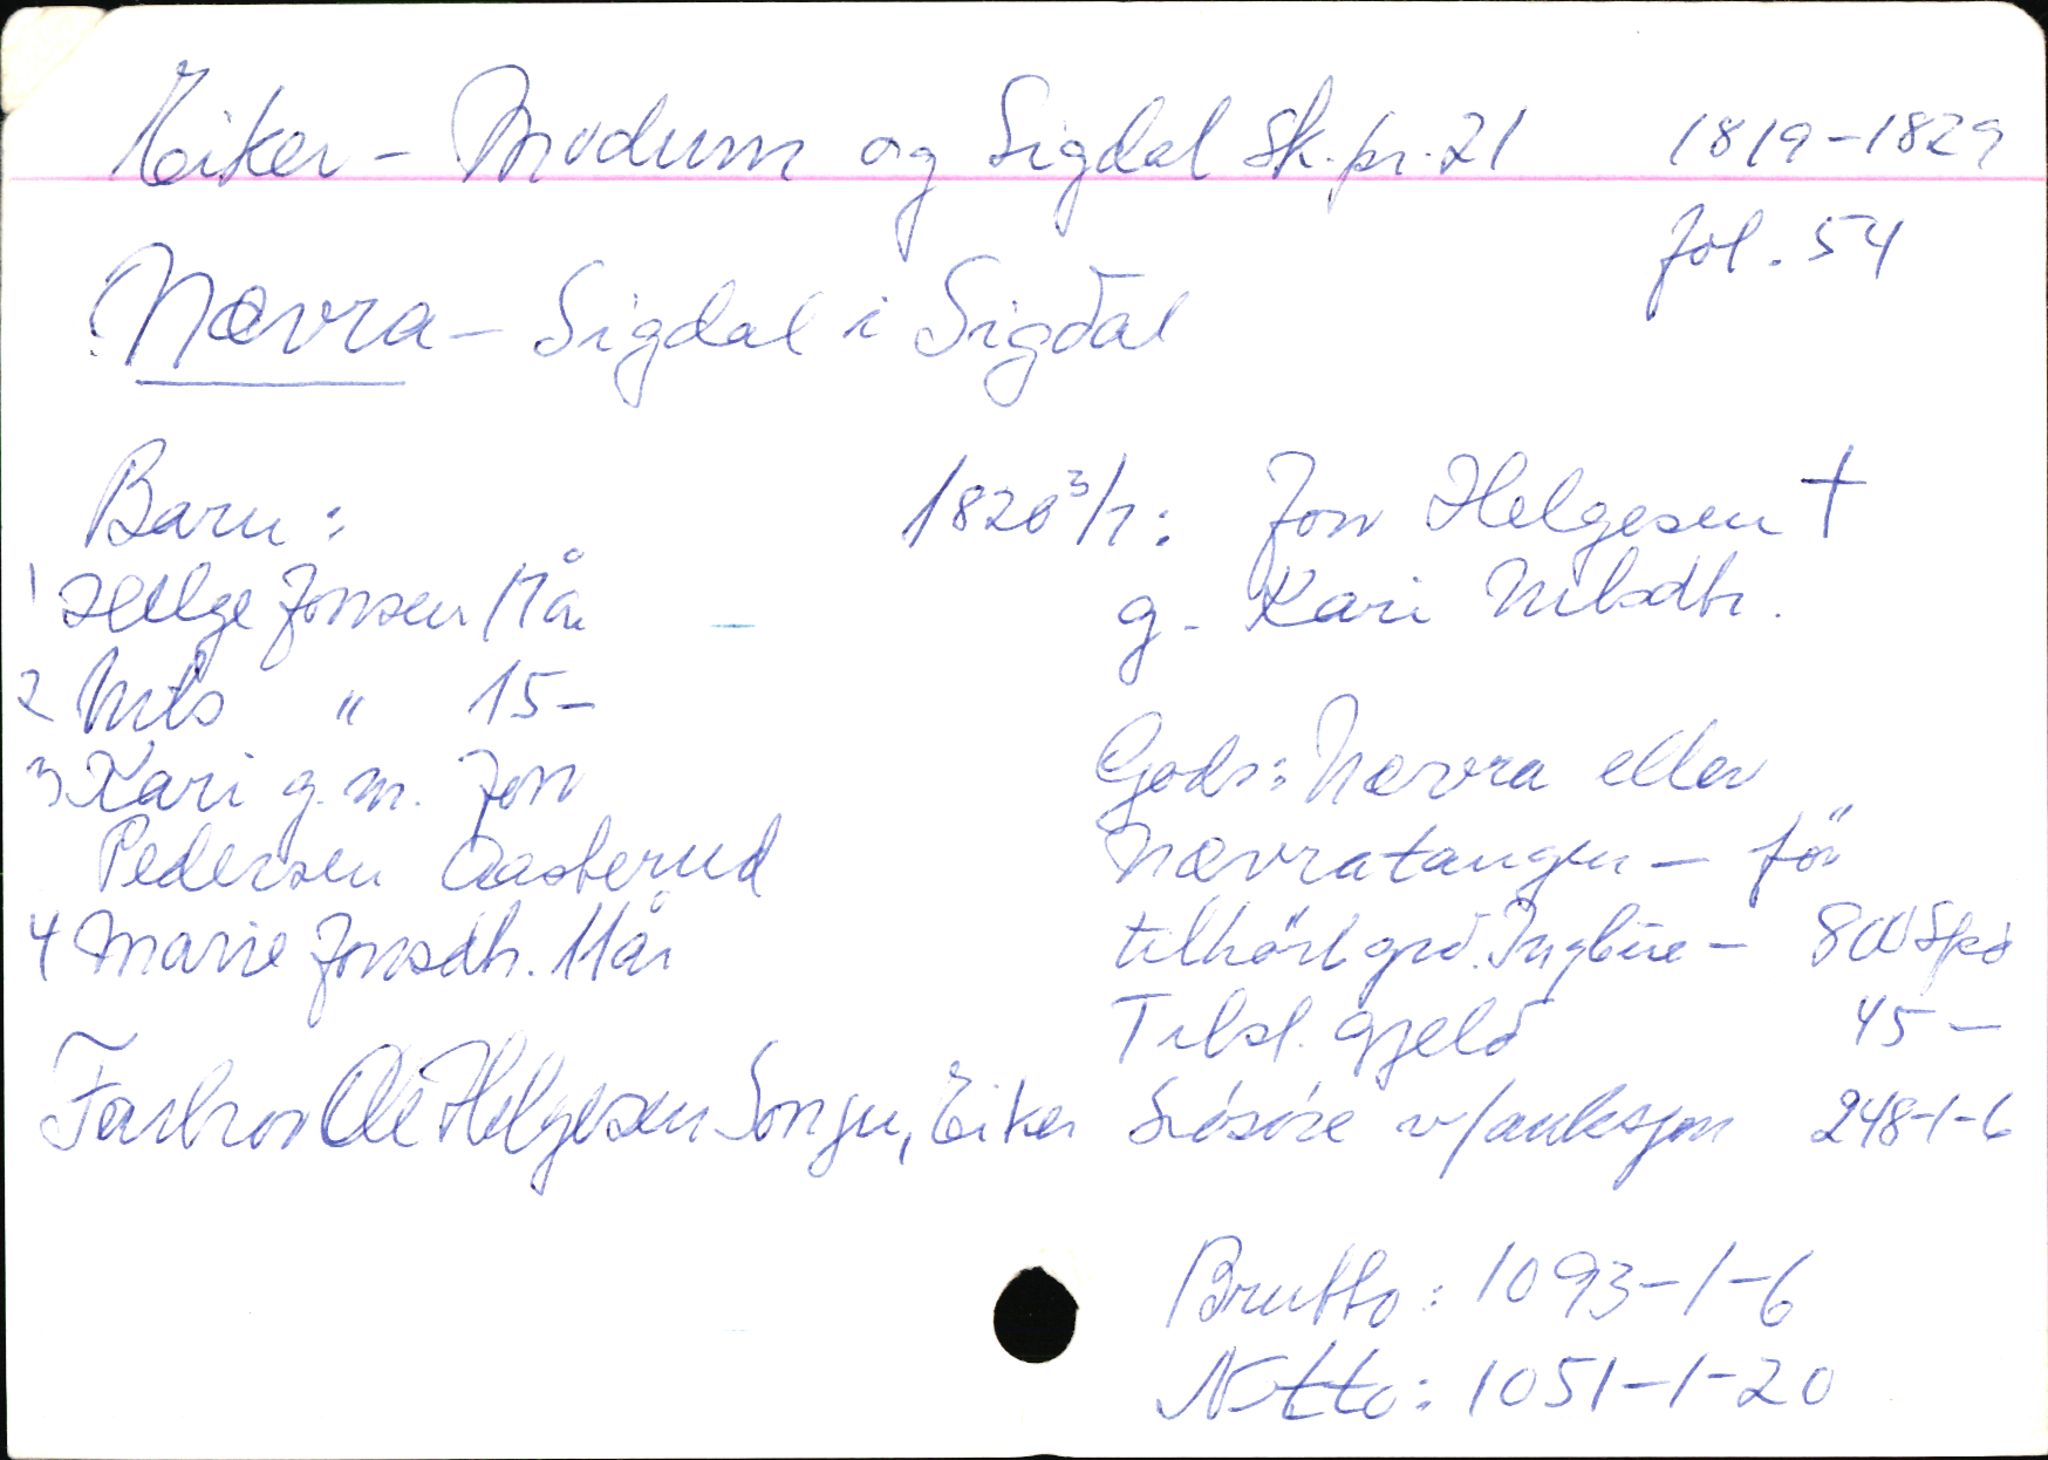 Eiker - Modum og Sigdal sk.pr. 21 1819-1829
fol. 54
Nævra - Sigdal i Sigdal
Barn:
1 Helge Jonsen 17 år
2 Nils " 15 -
3 Kari g.m. Jon
Pedersen Aasterud
4 Marie Jonsdtr. 11 år
Farbror Ole Helgesen Songn, Eiker
1820 3/7: Jon Helgesen †
g. Kari Nilsdtr.
Gods: Nævra eller
Nævratangen - för
tilhört grd. - 800 Spd
Tilst. gjeld 45 -
Lösöre v/auksjon 248-1-6
Brutto: 1093-1-6
Netto: 1051-1-20